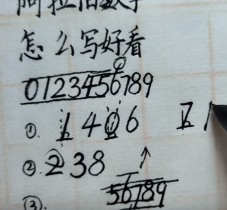 阿拉伯数字
怎么写好看
0123456789
①. 1 4 0 6
②. 2 3 8
③. 56789